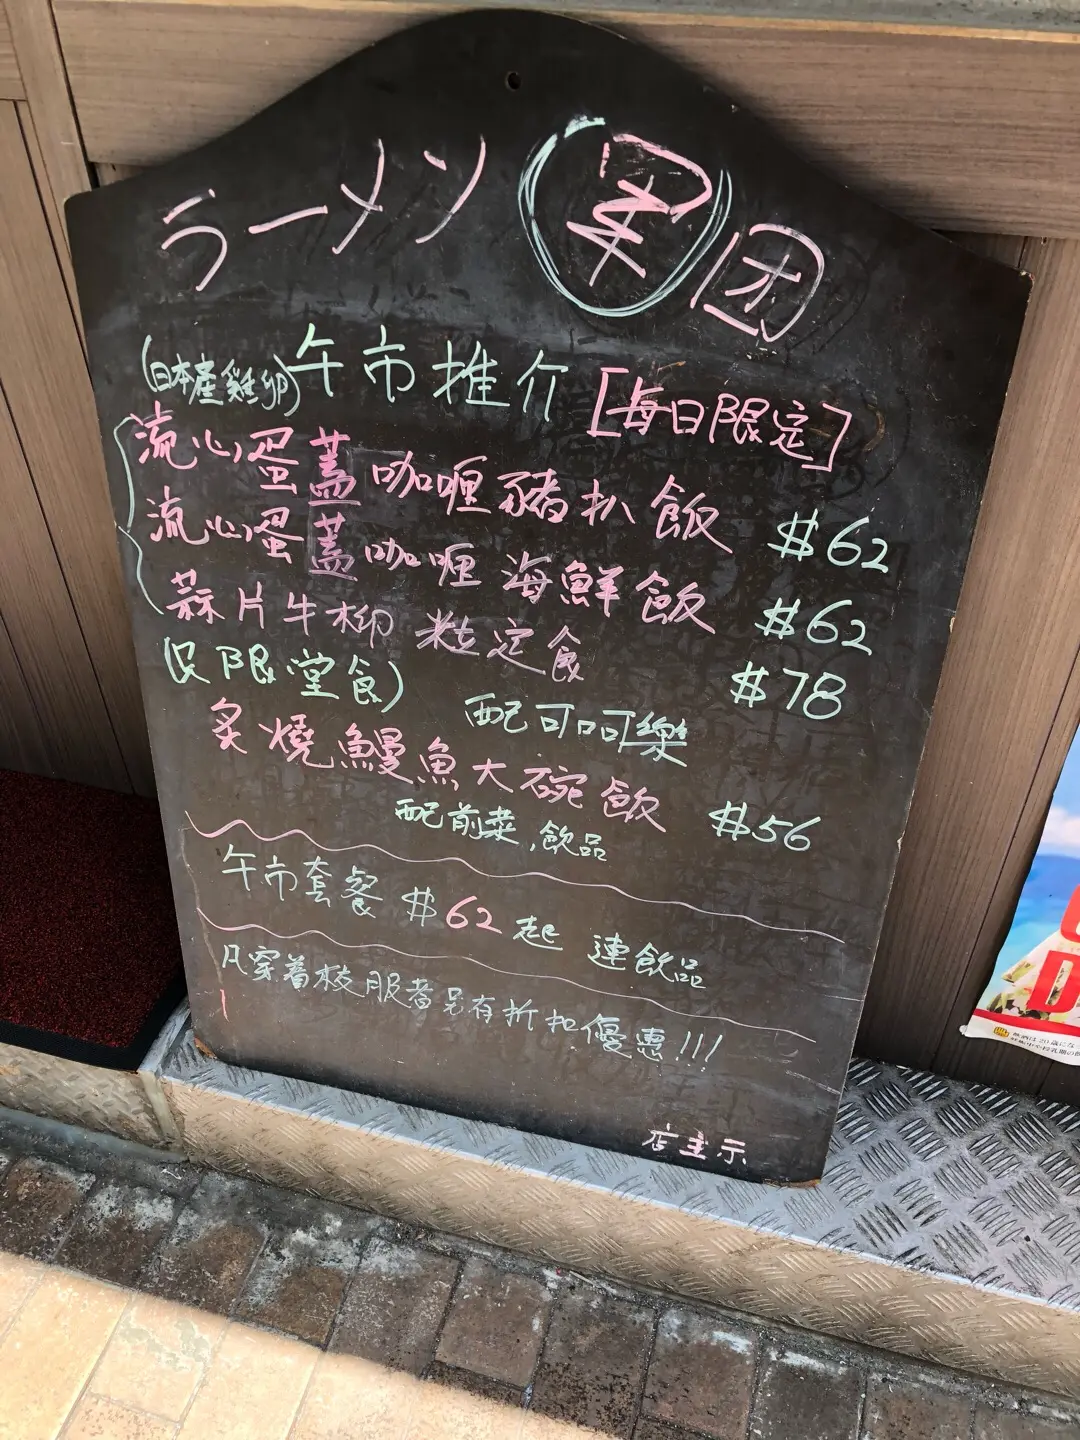 ラーメン 軍団
(日本產雞卵) 午市推介 [每日限定]
流心蛋蓋咖喱豬扒飯 $62
流心蛋蓋咖喱海鮮飯 $62
蒜片牛柳粒定食 $78
(只限堂食) 配可口可樂
炙燒鰻魚大碗飯 $56
配前菜,飲品
午市套餐 $62 起 連飲品
凡穿着校服者另有折扣優惠!!!
店主示